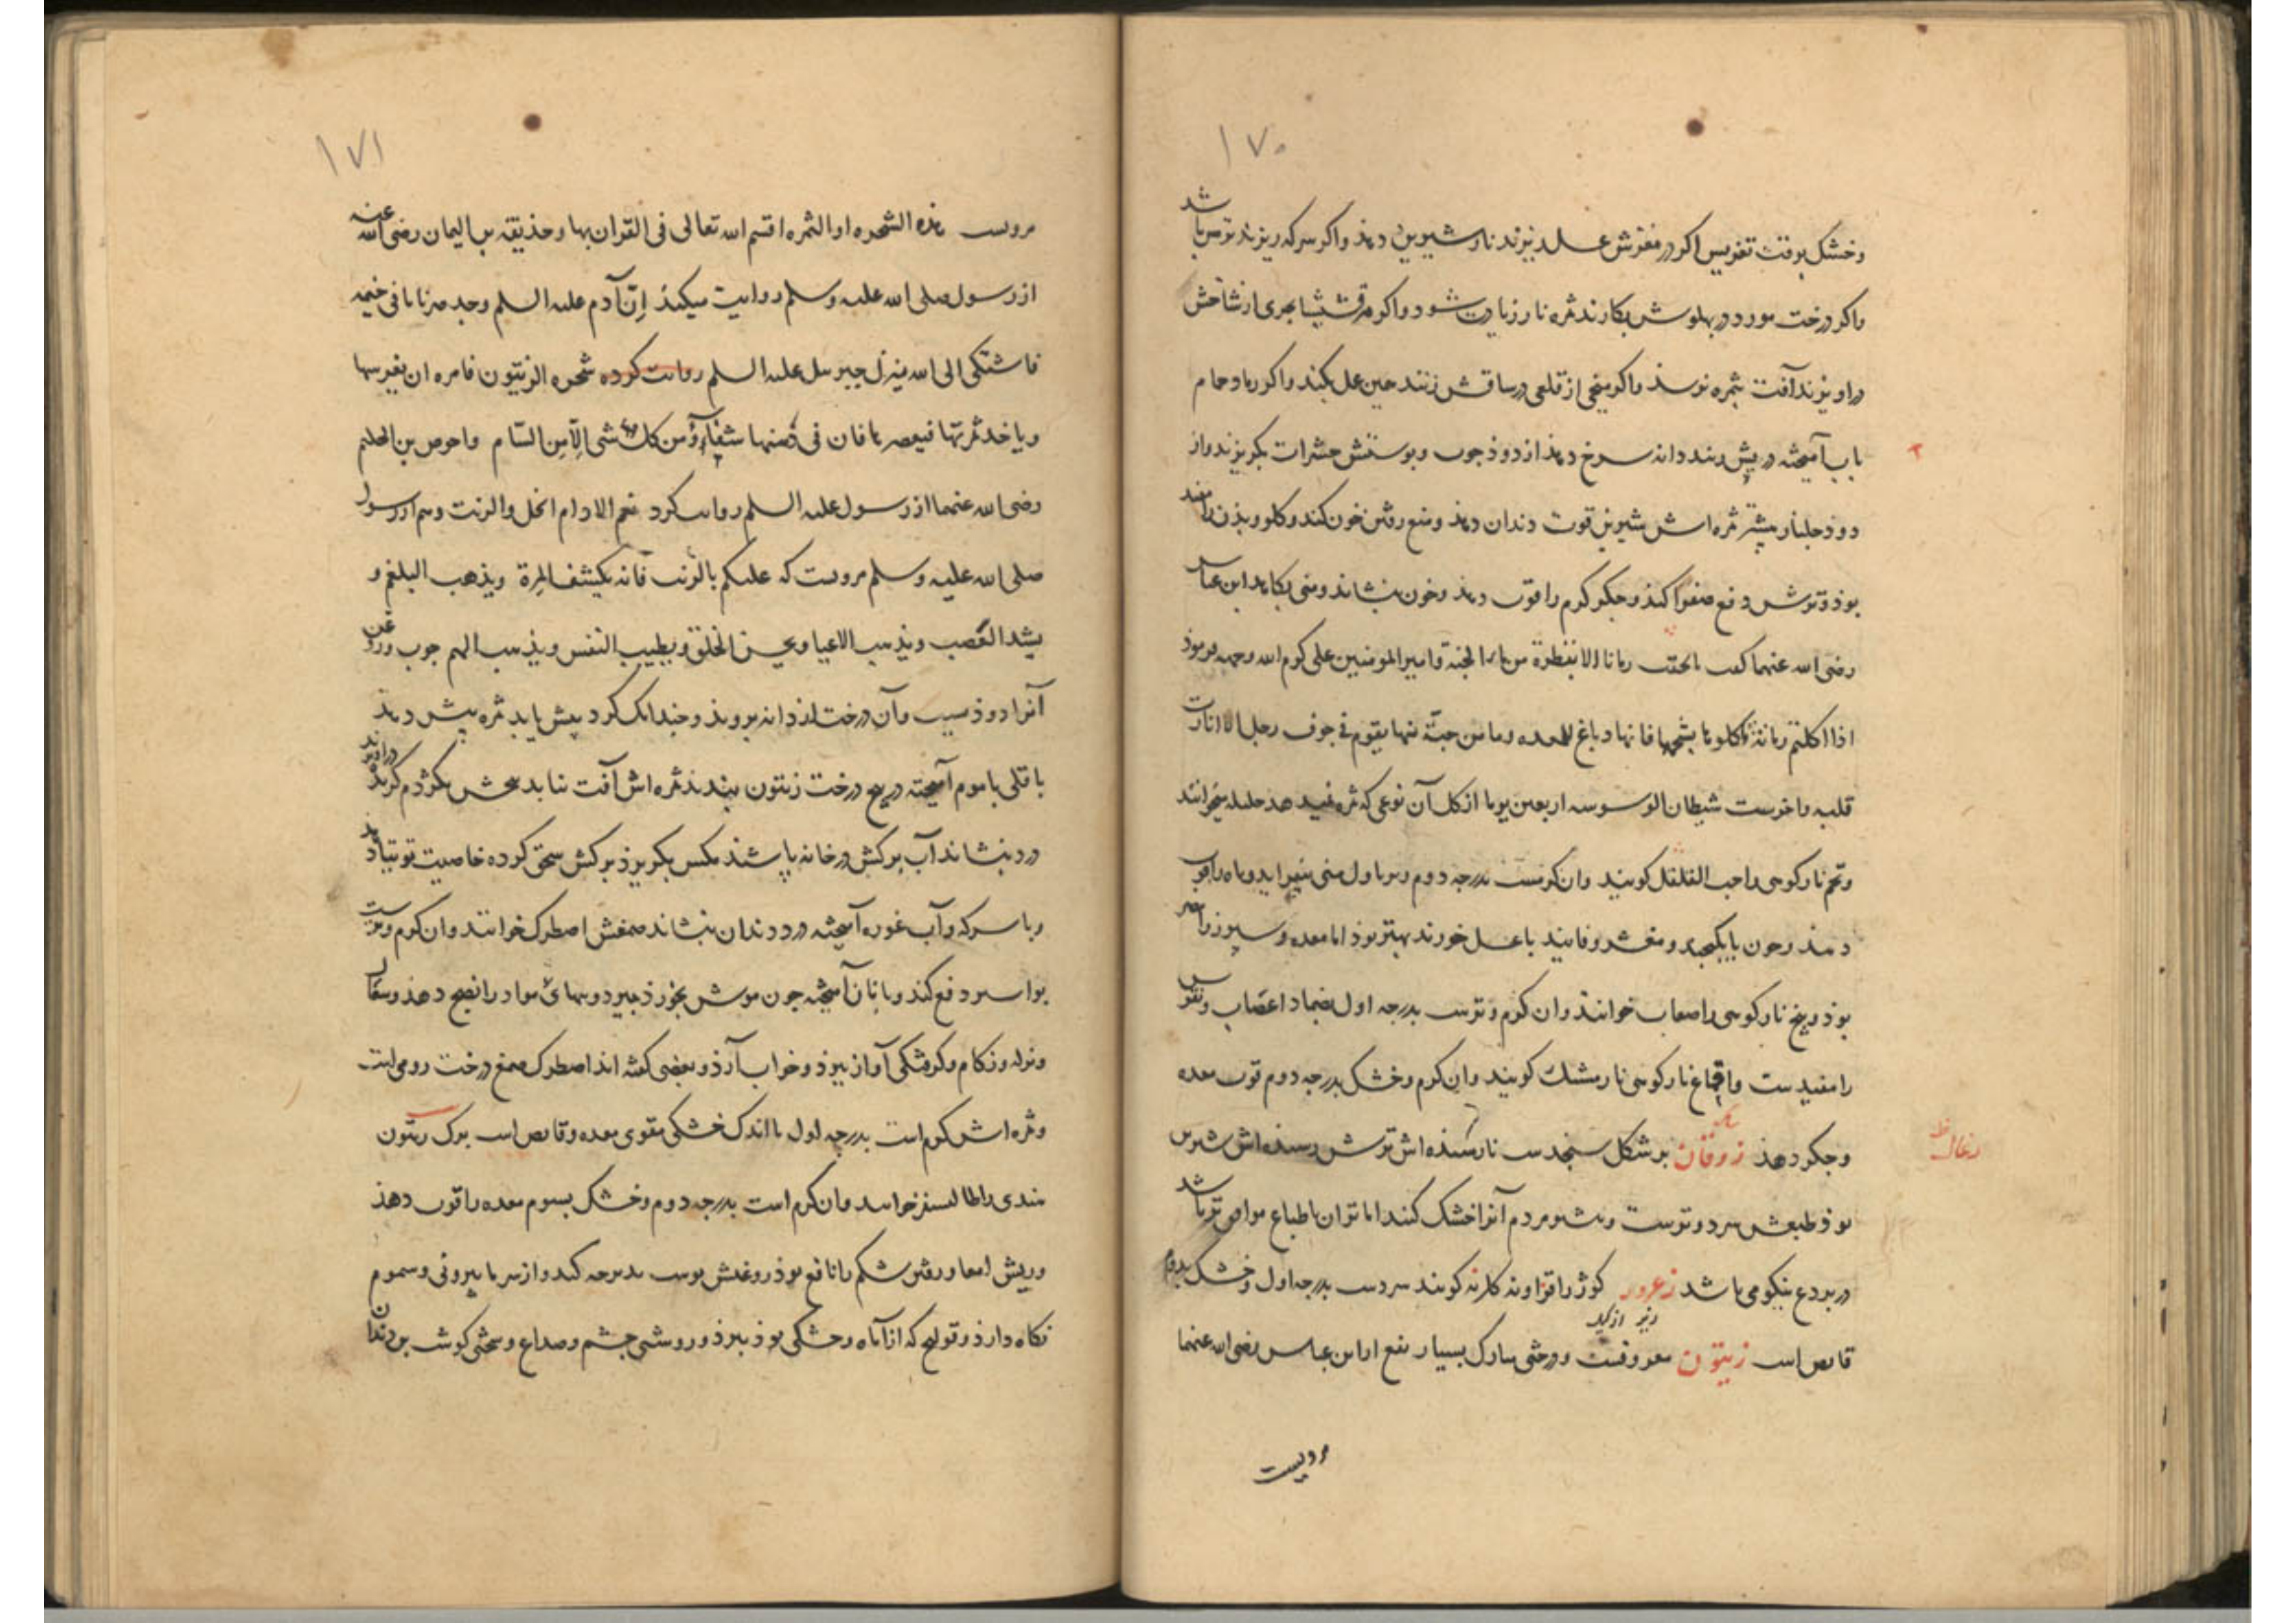 ۱۷۰
وخشک بوقت تغریس اکر در مغزش عسل ریزند نار شیرین دهذ واکر سرکه ریزند ترش باشد
واکر درخت مورد در پهلوش بکارند ثمره نار زیادت شود واکر مرقشیشا بحری از شاخش
دراویزند آفت بثمره نرسذ واکر میخی از قلعی در ساقش زنند همین عمل بکند واکر رماد حمام
باب آمیخته در بیخش بندند دانه سرخ دهذ از دوذ چوب وپوستش حشرات بکریزند واز
دوذ جلنار بیشتر ثمره اش شیرین قوت دندان دهذ ومنع رفتن خون کند وکلو وبذن را مفید
بوذ وترش دفع صفرا کند وجکر کرم را قوت دهذ وخون بنشاند ومنی بکاهد ابن عباس
رضی الله عنهما کفت ما لحقت رمانا الا بقطرة من ماء الجنة وامیر المومنین علی کرم الله وجهه فرموذ
اذا اکلتم رمانة فکلوها بشحمها فانها دباغ للمعده وما من حبّة منها یقوم فی جوف رجل الا انارت
قلبه واخرست شیطان الوسوسه اربعین یوما از کل آن نوعی که ثمره نمیدهد جلنار میخوانند
وتخم نار کوهی را حب القلقل کویند وان کرمست بدرجه دوم وتر باول منی بیفزاید وباه را قوت
دهند وجون با کنجد و مغشر وفانید با عسل خورند بهتر بوذ اما معده وسپرز را مضر
بوذ وبیخ نار کوهی را صعاب خوانند وان کرم وترست بدرجه اول ضماد اعصاب ونقرس
را مفیدست واقماع نار کوهی نار مشک کویند وان کرم وخشک بدرجه دوم قوت معده
وجکر دهذ زوقان بر شکل سنجدست نارسیده اش ترش رسیذه اش شیرین
بوذ طبعش سرد وترست وبیشتر مردم آنرا خشک کنند اما تر ان با طباع موافق تر باشد
در بردع نیکو می باشد زعرور کوژ را قزاونه کلرنه کویند سردست بدرجه اول وخشک بدوم
قابض است زیتون معروفست ودرختی مبارک بسیار نفع از ابن عباس رضی الله عنهما
مرویست
۱۷۱
مرویست هذه الشجره او الثمره اقسم الله تعالی فی القران بها وحذیفه بن الیمان رضی الله عنه
از رسول صلی الله علیه وسلم روایت میکند اِنّ آدم علیه السلم وجد ضربانا فی جسمه
فاشتکی الی الله فنزل جبرییل علیه السلم روایت کرده شجره الزیتون فامره ان یغرسها
ویاخد ثمرتها فیعصرها فان فی دُهنها شفاء من کل شی الاّ مِن السّام واحوص بن الحکیم
رضی الله عنهما از رسول علیه السلم روایت کرد نعم الادام الخل والزیت وهم از رسول
صلی الله علیه وسلم مرویست که علیکم بالزیت فانه یکشف المِرة ویذهب البلغم و
یشد العَصب ویذهب الاعیا ویحسن الخلق ویطیب النفس ویذهب الهم چوب وروغن
آنرا دوذ نیست وآن درخت از دانه بروید وچندانک کرد بیش یابد ثمره بیش دهد
باقلی با موم آمیخته در بیخ درخت زیتون بندند ثمره اش آفت نیابد بیخش بکژدم کزیده دراویزند
درد بنشاند آب برکش در خانه پاشند مکس بکریزذ برکش سحق کرده خاصیت توتیا دهد
وبا سرکه وآب غوره آمیخته درد دندان بنشاند صمغش اصطرک خوانند وان کرم وترست
بواسیر دفع کند وبا نان آمیخته چون موش بخورذ بمیرد وسمهای مواد را نضج دهذ وسعال
ونزله وزکام وکرفتکی آواز ببرذ وخواب آرذ وبعضی کفته اند اصطرک صمغ درخت رومی است
وثمره اش کرم است بدرجه اول با اندک خشکی مقوی معده وقابض است برک زیتون
هندی را طالیسفر خوانند وان کرم است بدرجه دوم وخشک بسیوم معده را قوت دهذ
وریش امعا ورفتن شکم را نافع بوذ روغنش پوست بدن برجه کند واز سرما بیرونی وسموم
نکاه دارذ وقولنج که از آماه وخشکی بوذ ببرذ وروشنی چشم وصداع وسختی کوشت بن دندان